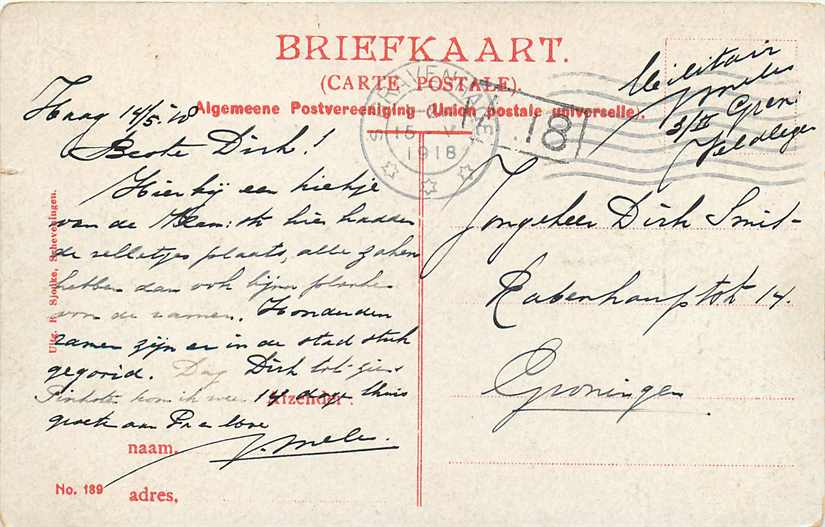 BRIEFKAART.
(CARTE POSTALE).
Algemeene Postvereeniging (Union postale universelle).
15 V
1918
18
Militair
J Mels
3/II Gren.
Veldleger
Haag 14/5 18
Beste Dirk!
Hierbij een kiekje
van de Plein: ok hier hadden
de relletjes plaats, alle zaken
hebben dan ook bijna planken
voor de ramen. Honderden
ramen zijn er in de stad stuk
gegooid. Dag Dirk tot ziens
Pinkster kom ik weer 14 dage thuis
groete aan Pa e
J. Mels
Jongeheer Dirk Smit
Rabenhauptstr 14.
Groningen
Afzender:
naam.
adres,
No. 189
Uitg. F. Sjodke, Scheveningen.